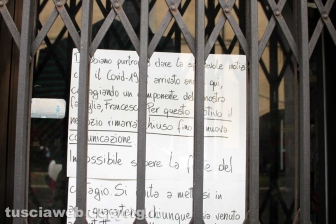 Dobbiamo purtroppo dare la spiacevole notizia
che il Covid-19 è arrivato anche qui,
contagiando un componente della nostra
famiglia, Francesco. Per questo motivo il
negozio rimarrà chiuso fino a nuova
comunicazione
Impossibile sapere la fine del
contagio. Si invita a mettersi in
quarantena chiunque sia venuto
tusciaweb